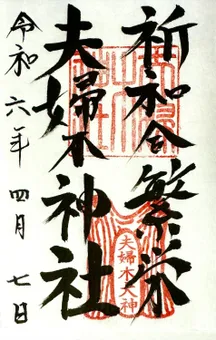 祈和合繁栄
夫婦木神社
令和六年 四月 七日
夫婦木大神